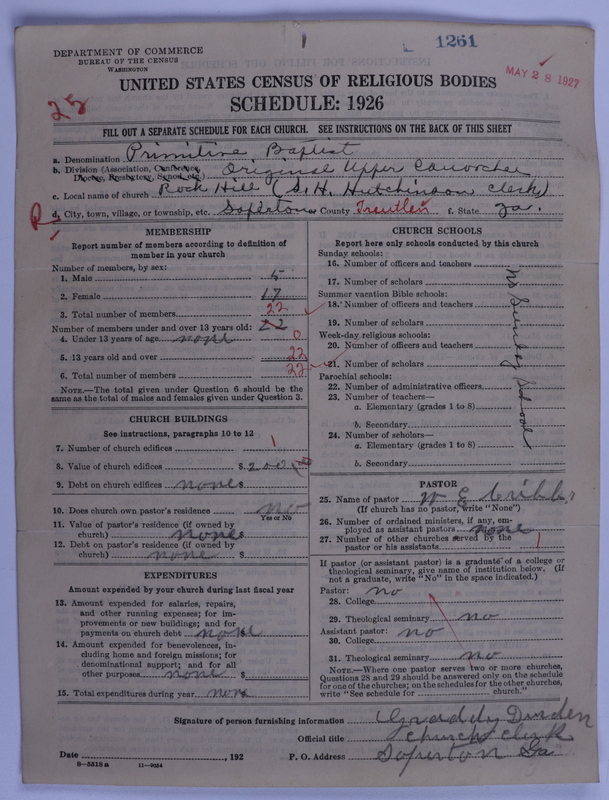 1261
MAY 28 1927
DEPARTMENT OF COMMERCE
BUREAU OF THE CENSUS
WASHINGTON
UNITED STATES CENSUS OF RELIGIOUS BODIES
SCHEDULE: 1926
FILL OUT A SEPARATE SCHEDULE FOR EACH CHURCH. SEE INSTRUCTIONS ON THE BACK OF THIS SHEET
a. Denomination Primitive Baptist
b. Division (Association, Conference, Original Upper
Diocese, Presbytery, Synod, etc.)
c. Local name of church Rock Hill (S.H. Hutchinson Clerk)
d. City, town, village, or township, etc. Soperton e. County Treutlen f. State Ga.
MEMBERSHIP
Report number of members according to definition of
member in your church
Number of members, by sex:
1. Male 5
2. Female 17
3. Total number of members 22
Number of members under and over 13 years old: 22
4. Under 13 years of age none 0
5. 13 years old and over 22
6. Total number of members 22
NOTE.—The total given under Question 6 should be the
same as the total of males and females given under Question 3.
CHURCH BUILDINGS
See instructions, paragraphs 10 to 12
7. Number of church edifices 1
8. Value of church edifices $ 200
9. Debt on church edifices none $
10. Does church own pastor's residence no
Yes or No
11. Value of pastor's residence (if owned by
church) none $
12. Debt on pastor's residence (if owned by
church) none $
EXPENDITURES
Amount expended by your church during last fiscal year
13. Amount expended for salaries, repairs,
and other running expenses; for im-
provements or new buildings; and for
payments on church debt none
14. Amount expended for benevolences, in-
cluding home and foreign missions; for
denominational support; and for all
other purposes none $
15. Total expenditures during year none
CHURCH SCHOOLS
Report here only schools conducted by this church
Sunday schools:
16. Number of officers and teachers
17. Number of scholars
Summer vacation Bible schools:
18. Number of officers and teachers
19. Number of scholars
Week-day religious schools:
20. Number of officers and teachers
21. Number of scholars
Parochial schools:
22. Number of administrative officers
23. Number of teachers—
a. Elementary (grades 1 to 8)
b. Secondary
24. Number of scholars—
a. Elementary (grades 1 to 8)
b. Secondary
No Sunday School
PASTOR
25. Name of pastor W E
(If church has no pastor, write "None")
26. Number of ordained ministers, if any, em-
ployed as assistant pastors none
27. Number of other churches served by the
pastor or his assistants 1
If pastor (or assistant pastor) is a graduate of a college or
theological seminary, give name of institution below. (If
not a graduate, write "No" in the space indicated.)
Pastor: no
28. College
29. Theological seminary no
Assistant pastor: no
30. College
31. Theological seminary no
NOTE.—Where one pastor serves two or more churches,
Questions 28 and 29 should be answered only on the schedule
for one of the churches; on the schedules for the other churches,
write "See schedule for church."
Signature of person furnishing information Graddy Durden
Official title church clerk
Date , 192 P. O. Address Soperton Ga
8-5518a 11-9034